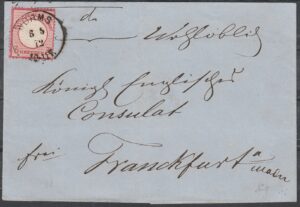 WORMS
5 4
72
d.
Wohllöblich
Königl Englisches
Consulat
frei Franckfurt a
main